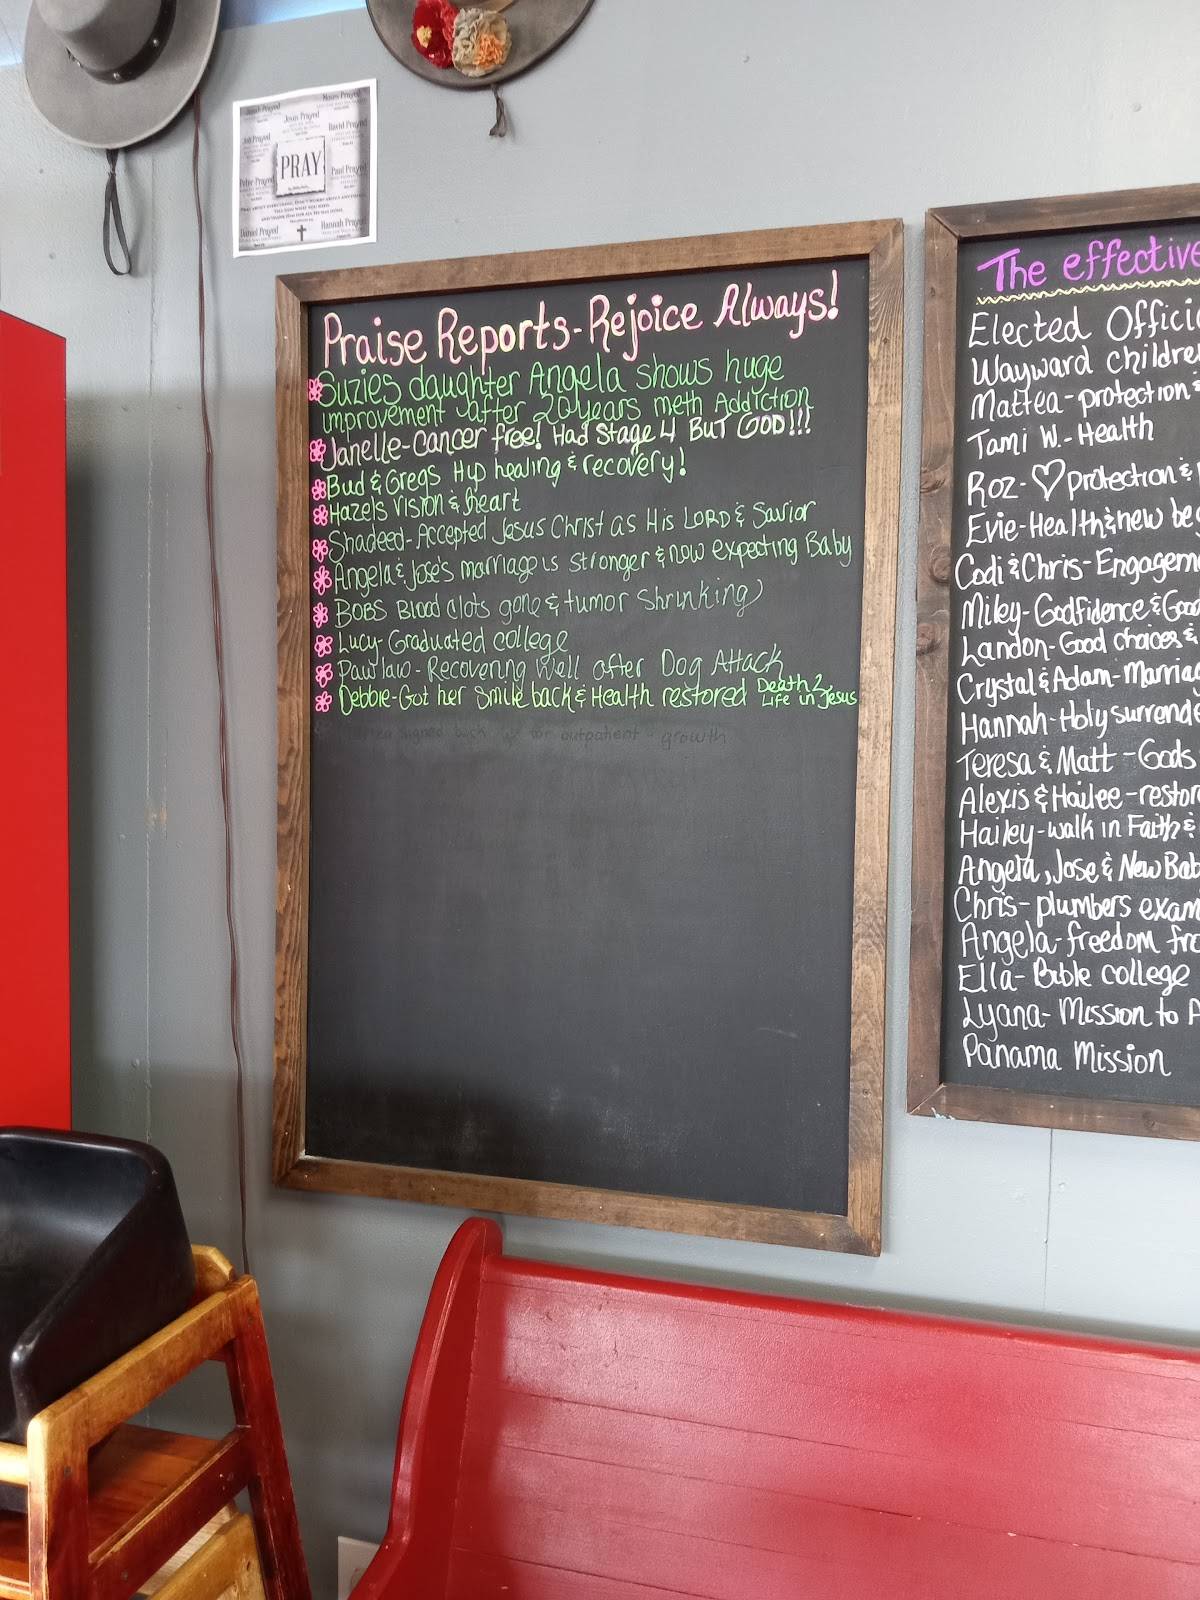 Jesus Prayed
David Prayed
Job Prayed
PRAY
Peter Prayed
Paul Prayed
PRAY ABOUT EVERYTHING. DON'T WORRY ABOUT ANYTHING.
TELL GOD WHAT YOU NEED,
AND THANK HIM FOR ALL HE HAS DONE.
Daniel Prayed
Hannah Prayed
Praise Reports-Rejoice Always!
Suzies daughter Angela shows huge
improvement after 20 years meth Addiction
Janelle-cancer free! Had Stage 4 BUT GOD!!!
Bud & Gregs Hip healing & recovery!
Hazels Vision & heart
Shadeed-Accepted Jesus Christ as His LORD & Savior
Angela & Jose's marriage is stronger & now expecting Baby
BOBS Blood clots gone & tumor shrinking
Lucy-Graduated college
Pawlaw-Recovering Well after Dog Attack
Debbie-Got her Smile back & Health restored Death 2
Life in Jesus
signed back up for outpatient - growth
The effective
Elected Offici
Wayward childre
Mattea-protection &
Tami W.-Health
Roz-♡protection &
Evie-Health & new be
Codi & Chris-Engagem
Miley-Godfidence & Good
Landon-Good choices &
Crystal & Adam-Marria
Hannah-Holy surrende
Teresa & Matt-Gods
Alexis & Hailee-restor
Hailey-walk in Faith &
Angela, Jose & New Bab
Chris-plumbers exam
Angela-freedom fro
Ella-Bible college
Lyana-Mission to A
Panama Mission